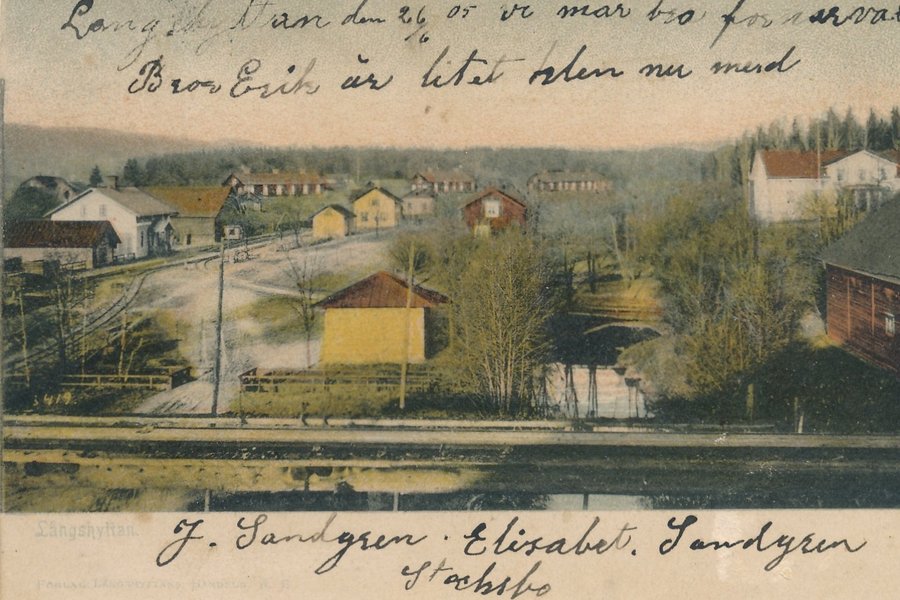 Långshyttan den 26/6 05 vi mår bra förnärva
Bror Erik är litet klen nu med
3419
Långshyttan.
J. Sandgren. Elisabet. Sandgren
Stocksbo
FÖRLAG LÅNGSHYTTANS HANDELS A. B.